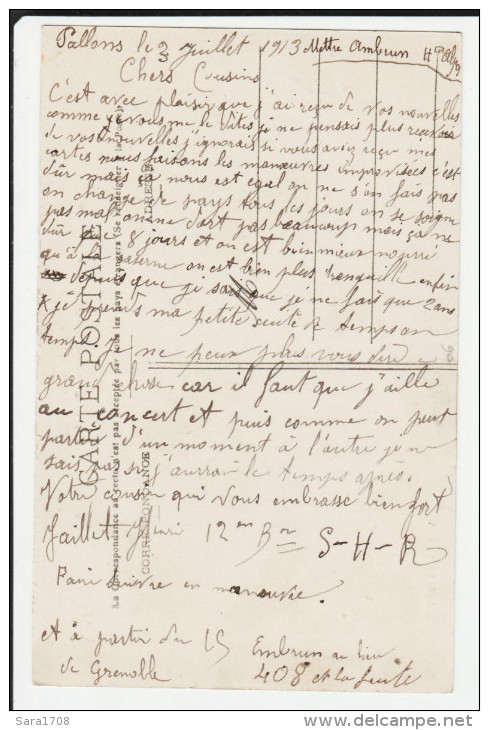 Pallons le 3 Juillet 1913 Mettre Ambrun Htes Alpes
Chers Cousins
C'est avec plaisir que j'ai reçu de vos nouvelles
comme vous me le dites je ne pensais plus recevoir
de vos nouvelles j'ignorais si vous aviez reçu mes
cartes nous faisons les manœuvres improvisées c'est
dur mais ça nous est egal on ne s'en fais pas
on change de pays tous les jours on se soigne
pas mal on ne dort pas beaucoup mais ça ne
dur que 8 jours et on est bien mieux nourri
qu'à la caserne on est bien plus tranquille enfin
depuis que je sais que je ne fais que 2 ans
je prends ma petite suite de temps en
temps je ne peux plus vous dire
grand chose car il faut que j'aille
au concert et puis comme on peut
partir d'un moment à l'autre je ne
sais pas si j'aurrai le temps après.
Votre cousin qui vous embrasse bien fort
Jaillet Henri 12em Bie S-H-R
Faire suivre en manœuvre.
et à partir du 15 Embrun au lieu
de Grenoble
408 et la suite
CARTE POSTALE
(La Correspondance au recto n'est pas acceptée par tous les pays étrangers (Se renseigner à la Poste))
CORRESPONDANCE
ADRESSE
Sara1708
www.delcampe.net